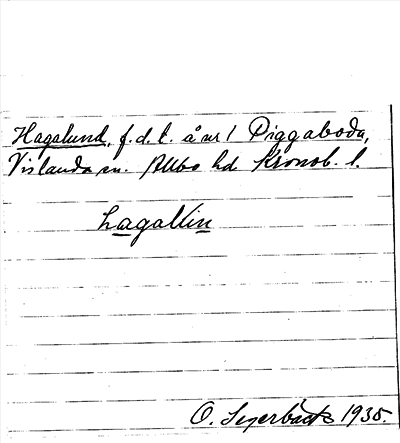 Hagalund, f.d. l. å nr 1 Piggaboda,
Vislanda sn. Allbo hd Kronob. l.
hagallin
O. Segerbäck 1935.